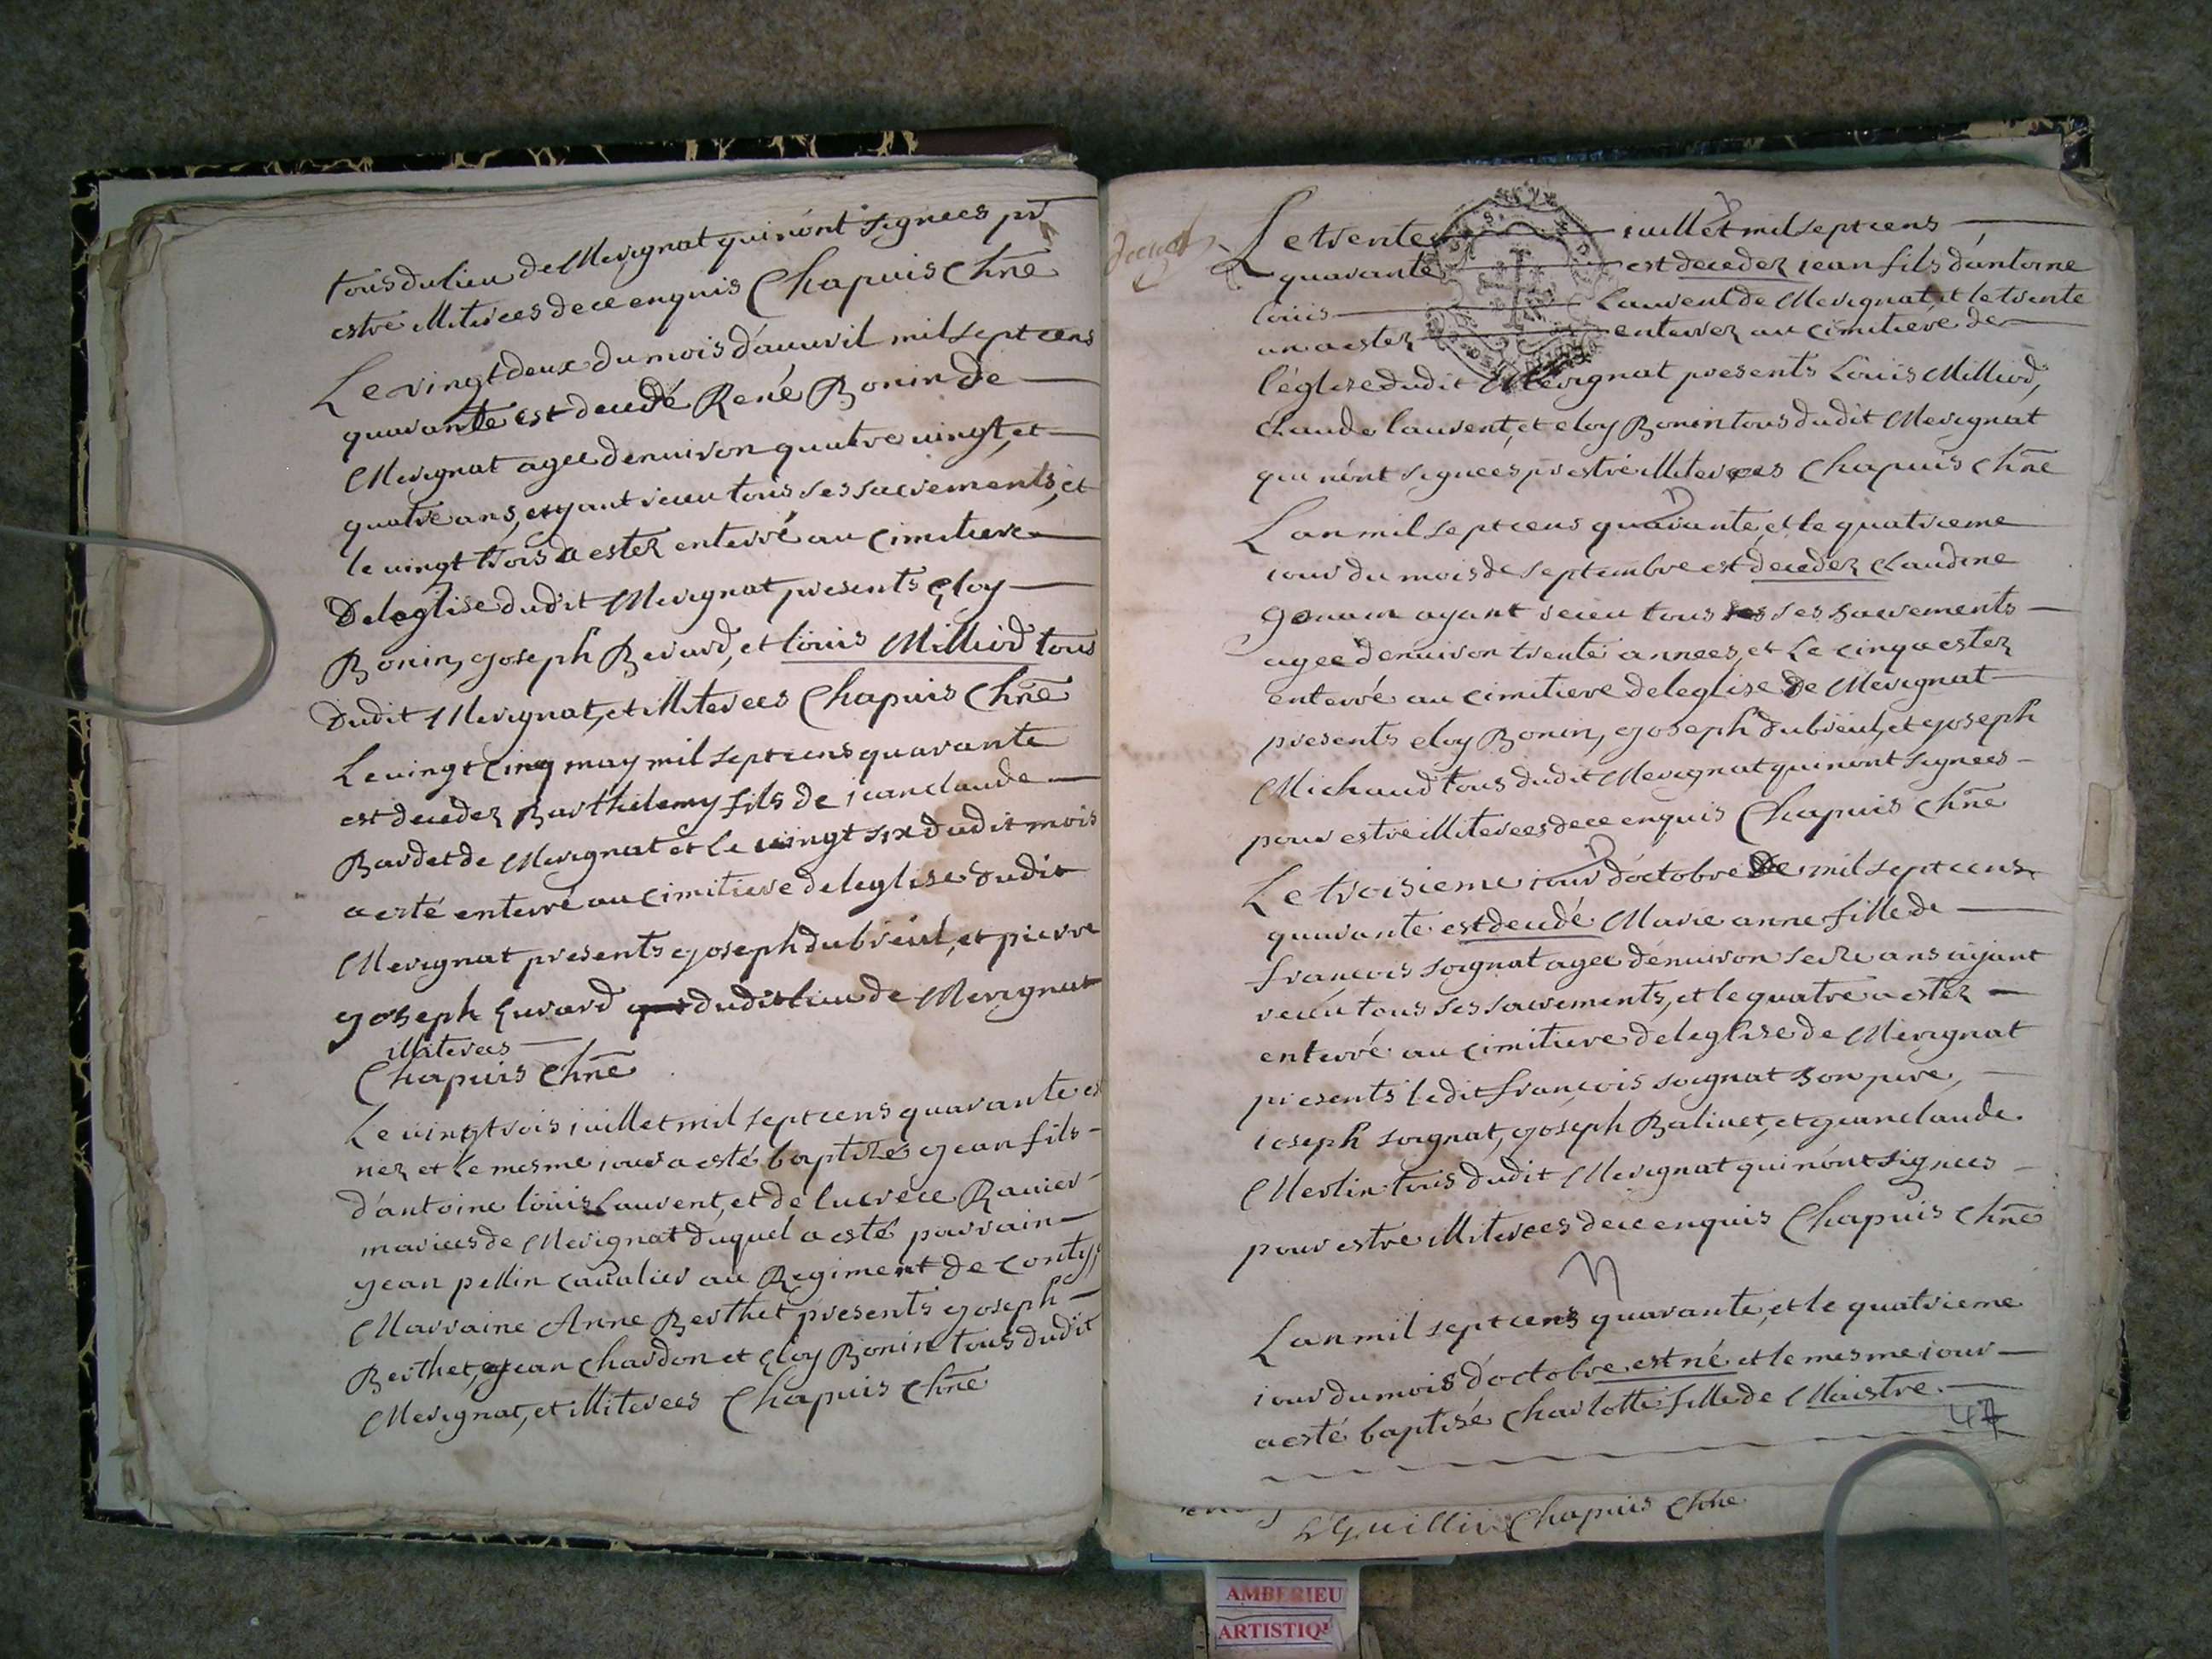 tous du lieu de Merignat qui n'ont signees pr
estre illiterees de ce enquis Chapuis Chne
Le vingt deux du mois d'auuril mil sept cens
quarante est decedé René Bonin de
Merignat agee denuiron quatre uingt, et
quatre ans, eyant receu tous ses sacrements, et
le uingt trois a estez enterré au cimitiere
De leglise dudit Merignat presents Eloy
Bonin, Joseph Berard, et Louis Milliod tous
Dudit Merignat, et illiterees Chapuis Chne
Le uingt cinq may mil sept cens quarante
est decedez Barthelemy fils de jean claude
Bardet de Merignat et le uingt six dudit mois
a esté enterré au cimitiere de leglise dudit
Merignat presents Joseph dubreul, et pierre
Joseph Euvard dudit lieu de Merignat
illiterees
Chapuis Chne
Le uingt trois iuillet mil sept cens quarante est
nez et le mesme iour a esté baptizé Jean fils
d'antoine Louis Laurent, et de lucrece Ravier
mariees de Merignat duquel a esté parrain
Jean pellin caualier au Regiment de Conty,
Marraine Anne Berthet presents Joseph
Berthet, Jean Chardon et Eloy Bonin tous dudit
Merignat, et illiterees Chapuis Chne
Le trente iuillet mil sept cens
quarante est decedez iean fils d'antoine
Louis Laurent de Merignat et le trente
un a estez enterrez au cimitiere de
l'églize dudit Merignat presents Louis Milliod,
Claude laurent, et eloy Bonin tous dudit Merignat
qui n'ont signées pr estre illiterees Chapuis Chne
Lan mil sept cens quarante, et le quatrieme
iour du mois de septembre est decedez Claudine
ayant receu tous ses sacrements
agee denuiron trente annees, et Le cinq a estez
enterré au cimitiere de leglise De Merignat
presents eloy Bonin, Joseph dubreul, et Joseph
Michaud tous dudit Merignat qui n'ont signees
pour estre illiterees de ce enquis Chapuis Chne
Le troisieme iour d'octobre de mil sept cens
quarante est decedé Marie anne fille de
françois soignat agee d'enuiron seize ans aÿant
receu tous ses sacrements, et le quatre a estez
enterré au cimitiere de leglize de Merignat
presents ledit françois soignat son pere,
ioseph soignat, Joseph Balivet, et Jean claude
Merlin tous dudit Merignat qui n'ont signees
pour estre illiterees de ce enquis Chapuis Chne
Lan mil sept cens quarante, et le quatrieme
iour du mois d'octobre est né et le mesme iour
a esté baptisé Charlotte fille de Maistre
47
Guillin Chapuis Chne
AMBERIEU
ARTISTIQ